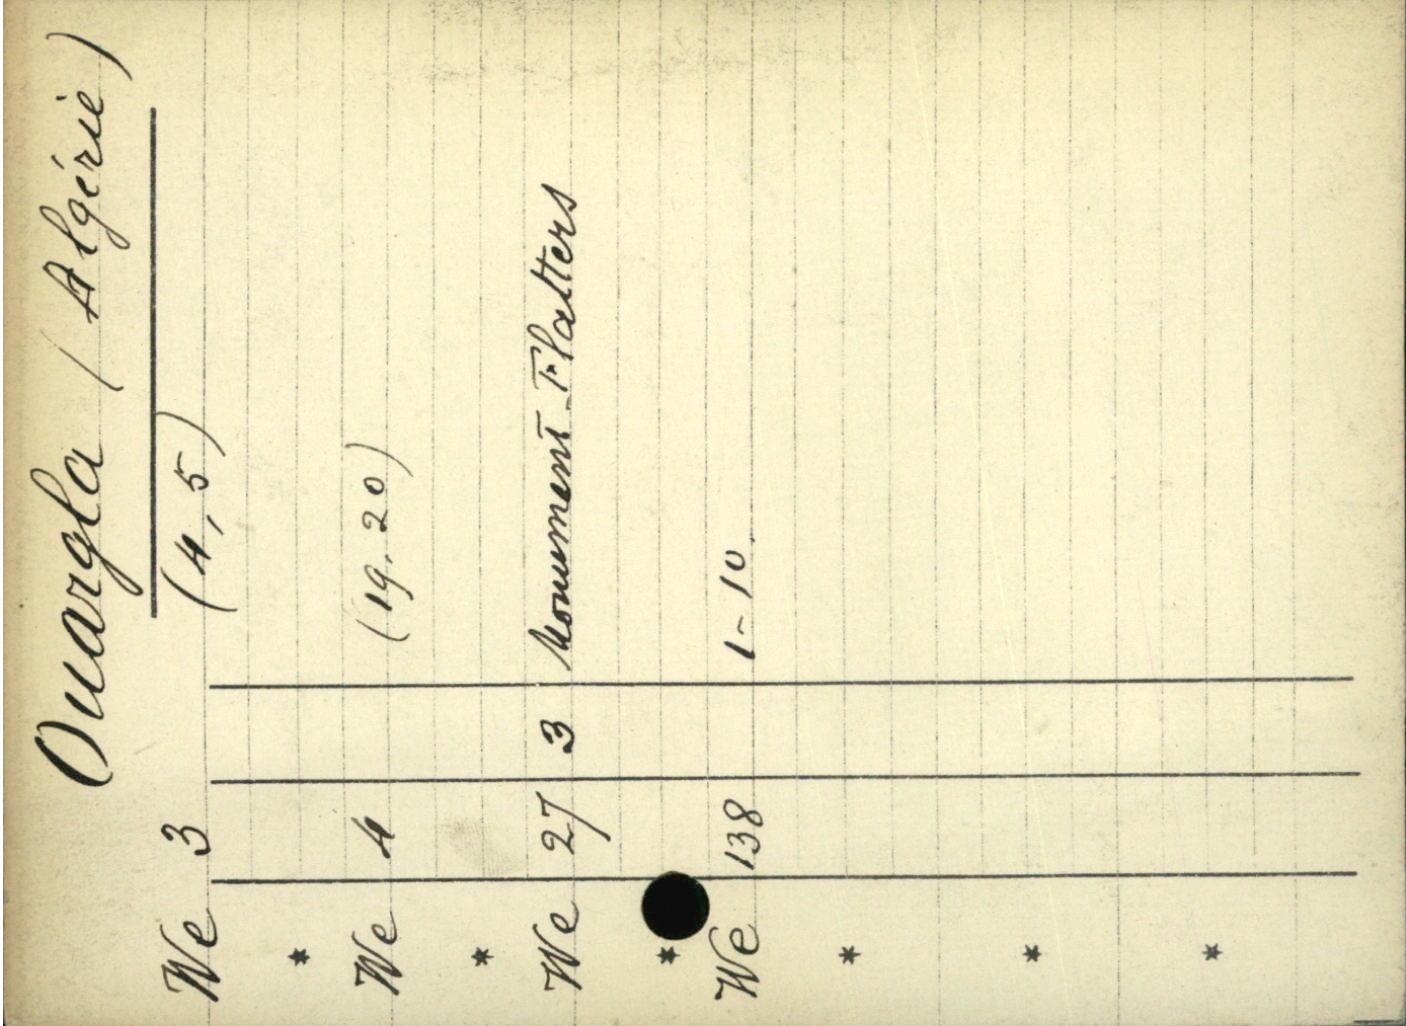 Ouargla (Algérie)
We 3 (4, 5)
*
We 4 (19. 20)
*
We 27 3 Monument Flatters
*
We 138 1-10.
*
*
*